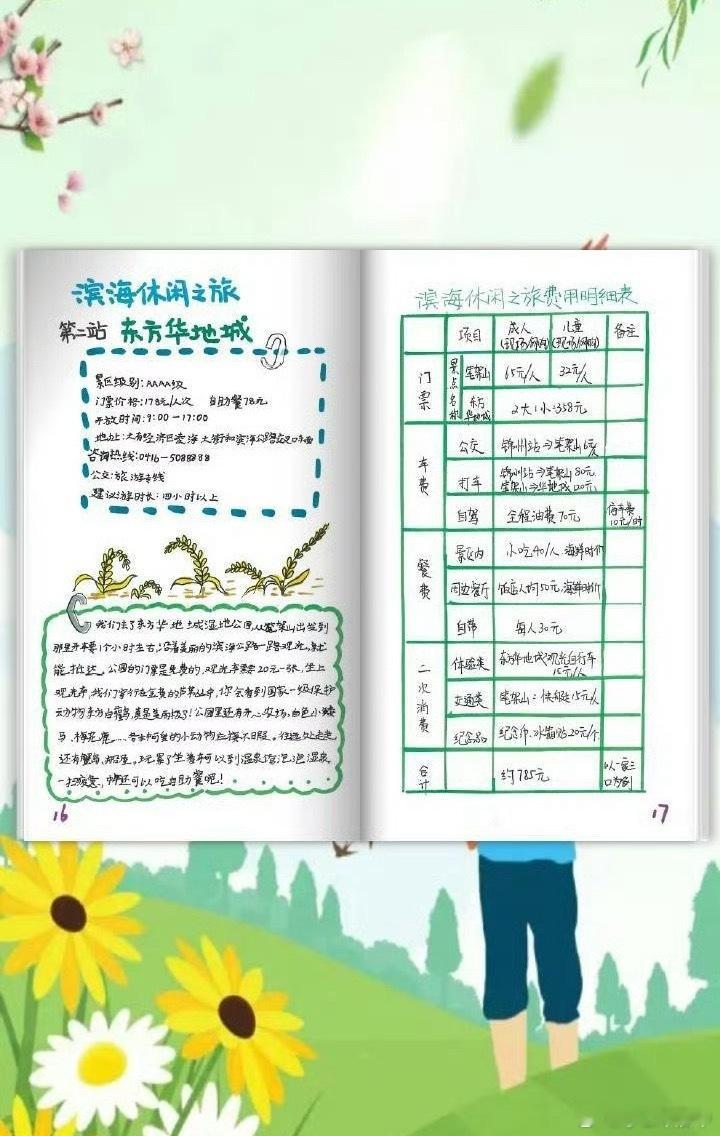 滨海休闲之旅
第二站 东方华地城
景区级别：AAAA级
门票价格：178元/人次 自助餐78元
开放时间：9:00—17:00
地址：大有经济区爱海大街和滨海公路交叉口东西
咨询热线：0416-5088888
公交：旅游专线
建议游时长：四小时以上
我们去了东方华地城湿地公园，从笔架山出发到
那里开车要1个小时左右，沿着美丽的滨海公路一路观光，就
能抵达。公园的门票是免费的，观光车票20元一张，坐上
观光车，我们穿行在金黄的芦苇丛中，你会看到国家一级保护
动物东方白鹳，真是美丽极了！公园里还有开心农场，白色小矮
马、梅花鹿……各种可爱的小动物应接不暇。往远处走走
还有鸳鸯、玩累了坐着车可以到温泉馆泡泡温泉
一扫疲惫，中午还可以吃自助餐呢！
16
滨海休闲之旅费用明细表
项目 成人 儿童 备注
(现场/网购) (现场/网购)
门票 景点名称 笔架山 65元/人 32元/人
东方华地城 2大1小：358元
车费 公交 锦州站→笔架山 6元
打车 锦州站→笔架山80元
笔架山→华地城120元
自驾 全程油费70元 停车费10元/时
餐费 景区内 小吃40/人 海鲜时价
周边餐厅 饭店人均50元，海鲜时价
自带 每人30元
二次消费 体验类 东方华地城：观光自行车
15元/人
交通类 笔架山：快艇15元/人
纪念品 纪念币、冰箱贴20元/个
合计 约785元 以一家三口为例
17